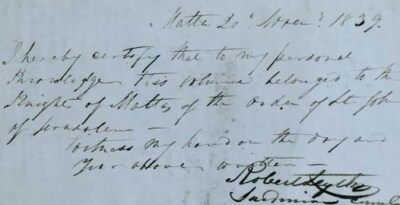 Malta 20th Novem.r 1839.
I hereby certify that to my personal
Knowledge this volume belonged to the
Knights of Malta of the order of St Joh
of Jerusalem —
Witness my hand on the day and
Year above written —
Robert
Sardinian Consul